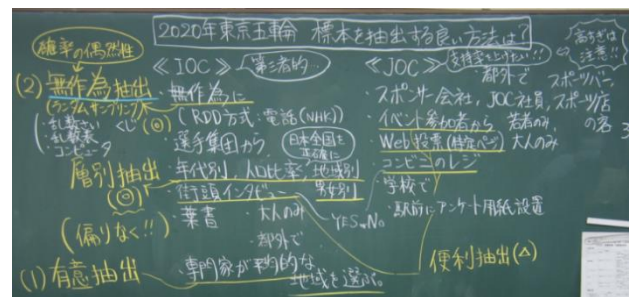 2020年東京五輪 標本を抽出する良い方法は?
確率の偶然性
(2) 無作為抽出
(ランダムサンプリング)
乱数さい
乱数表
コンピュータ
くじ
(◎)
層別抽出
(◎)
(偏りなく!!)
(1) 有意抽出
《IOC》
第三者的…
・無作為に
(RDD方式:電話(NHK))
・選手集団から
日本全国を
正確に
・年代別、人口比率、地域別
男女別
・街頭インタビュー
YES or No
・葉書
・大人のみ
・都外で
・専門家が平均的な
地域を選ぶ。
《JOC》
支持率を上げたい!!
高すぎは
注意!!
・都外で
スポーツバー、
・スポンサー会社、JOC社員、スポーツ店
の客
・イベント参加者から
若者のみ
・Web投票(特定ページ)
大人のみ
・コンビニのレジ
・学校で
・駅前にアンケート用紙設置
便利抽出(△)